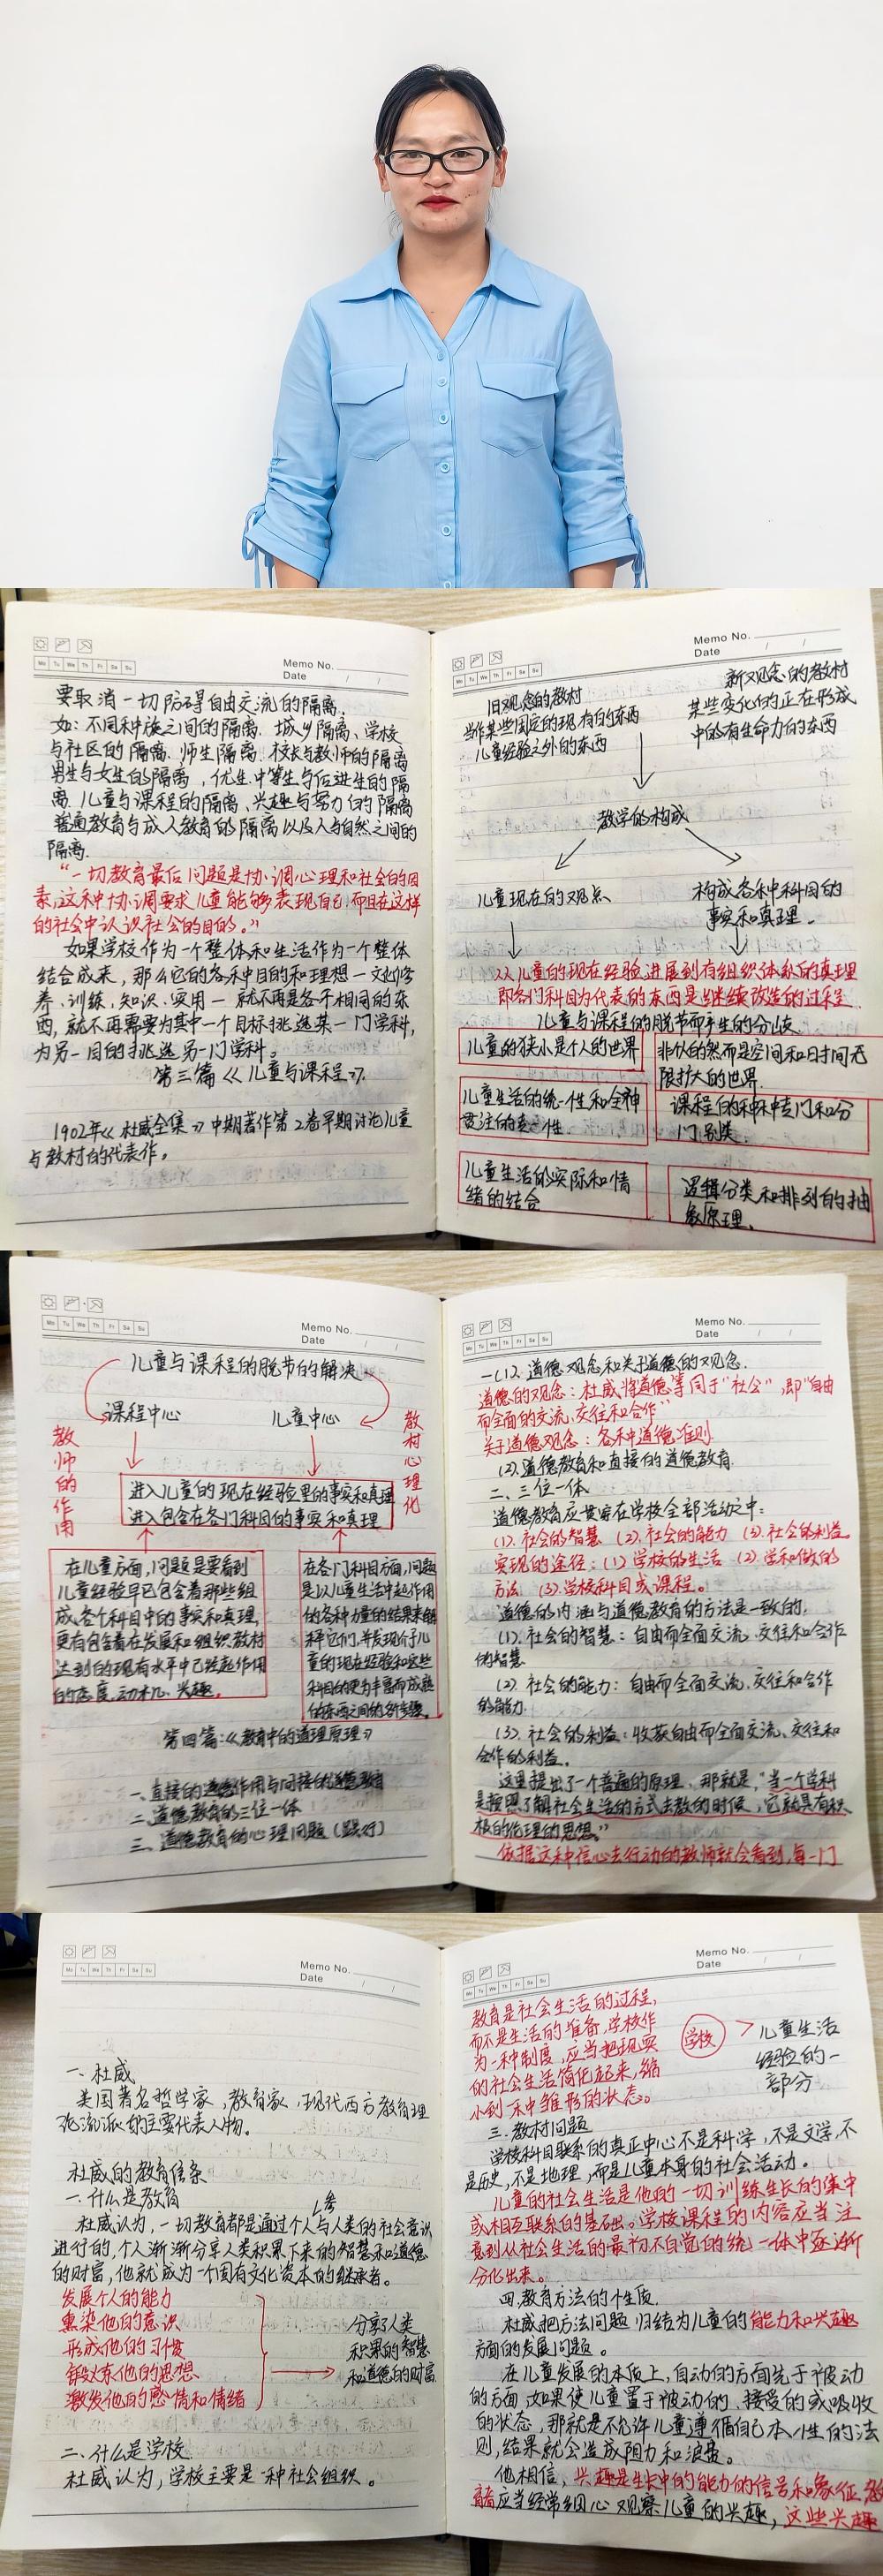 Mo Tu We Th Fr Sa Su
Memo No.
Date / /
要取消一切防碍自由交流的隔离.
如:不同种族之间的隔离.城乡隔离、学校
与社区的隔离.师生隔离.校长与教师的隔离
男生与女生的隔离,优生.中等生与后进生的隔
离.儿童与课程的隔离、兴趣与努力的隔离
普通教育与成人教育的隔离以及人与自然之间的
隔离.
“一切教育最后问题是协调心理和社会的因
素,这种协调要求儿童能够表现自己,而且在这样
的社会中认识社会的目的。”
如果学校作为一个整体和生活作为一个整体
结合成来,那么它的各种目的和理想一文化修
养.训练.知识.实用一就不再是各不相同的东
西,就不再需要为其中一个目标挑选某一门学科,
为另一目的挑选另一门学科。
第三篇《儿童与课程》.
1902年《杜威全集》中期著作第2卷早期讨论儿童
与教材的代表作。
Mo Tu We Th Fr Sa Su
Memo No.
Date / /
旧观念的教材
当作某些固定的现有的东西
儿童经验之外的东西
新观念的教材
某些变化的正在形成
中的有生命力的东西
教学的构成
儿童现在的观点
构成各种科目的
事实和真理.
从儿童的现在经验进展到有组织体系的真理
即各门科目为代表的东西是继续改造的过程
儿童与课程的脱节而产生的分歧
儿童的狭小是个人的世界
非似的然而是空间和日寸间无
限扩大的世界.
儿童生活的统一性和全神
贯注的专一性
课程的种种专门和分
门别类.
儿童生活的实际和情
绪的结合
逻辑分类和排列的抽
象原理.
Mo Tu We Th Fr Sa Su
Memo No.
Date / /
儿童与课程的脱节的解决
课程中心
儿童中心
教师的作用
教材心理化
进入儿童的现在经验里的事实和真理
进入包含在各门科目的事实和真理
在儿童方面,问题是要看到
儿童经验早已包含着那些组
成各个科目中的事实和真理,
更有包含着在发展和组织教材
达到的现有水平中已经起作用
的态度.动机.兴趣.
在各门科目方面,问题
是以儿童生活中起作用
的各种力量的结果来解
释它们,并发现介于儿
童的现在经验和这些
科目的更为丰富而成熟
的东西之间的各步骤.
第四篇:《教育中的道理原理》
一.直接的道德作用与间接的道德教育
二.道德教育的三位一体
三、道德教育的心理问题(践行)
Mo Tu We Th Fr Sa Su
Memo No.
Date / /
一(1).道德观念和关于道德的观念.
道德的观念:杜威将道德等同于“社会”,即“自由
而全面的交流,交往和合作”
关于道德观念:各种道德准则
(2).道德教育和直接的道德教育.
二、三位一体
道德教育应贯穿在学校全部活动之中:
(1).社会的智慧 (2).社会的能力 (3).社会的利益.
实现的途径:(1)学校的生活 (2).学和做的
方法 (3).学校科目或课程。
道德的内涵与道德教育的方法是一致的.
(1).社会的智慧:自由而全面交流,交往和合作
的智慧.
(2).社会的能力:自由而全面交流,交往和合作
的能力.
(3).社会的利益:收获自由而全面交流、交往和
合作的利益.
这里提出了一个普遍的原理,那就是,“当一个学科
是按照了解社会生活的方式去教的时候,它就具有积
极的伦理的思想.”
依据这种信心去行动的教师就会看到,每一门
Mo Tu We Th Fr Sa Su
Memo No.
Date / /
一、杜威
美国著名哲学家,教育家,现代西方教育理
论流派的主要代表人物.
杜威的教育信条
一.什么是教育
杜威认为,一切教育都是通过个人参与人类的社会意识
进行的,个人渐渐分享人类积累下来的智慧和道德
的财富,他就成为一个固有文化资本的继承者。
发展个人的能力
熏染他的意识
形成他的习惯
锻炼他的思想
激发他的感情和情绪
分享人类
积累的智慧
和道德的财富
二、什么是学校.
杜威认为,学校主要是一种社会组织。
Mo Tu We Th Fr Sa Su
Memo No.
Date / /
教育是社会生活的过程,
而不是生活的准备,学校作
为一种制度,应当把现实
的社会生活简化起来,缩
小到一种雏形的状态。
学校
儿童生活
经验的一
部分
三.教材问题
学校科目联系的真正中心不是科学,不是文学,不
是历史,不是地理,而是儿童本身的社会活动.
儿童的社会生活是他的一切训练生长的集中
或相互联系的基础。学校课程的内容应当注
意到从社会生活的最初不自觉的统一体中逐渐
分化出来。
四.教育方法的个性质.
杜威把方法问题归结为儿童的能力和兴趣
方面的发展问题。
在儿童发展的本质上,自动的方面先于被动
的方面,如果使儿童置于被动的.接受的或吸收
的状态,那就是不允许儿童遵循自己本性的法
则,结果就会造成阻力和浪费。
他相信,兴趣是生长中的能力的信号和象征.教
育者应当经常细心观察儿童的兴趣,这些兴趣